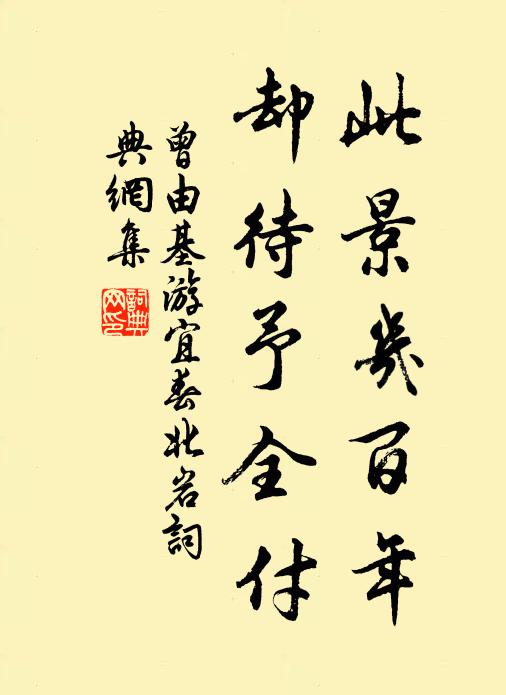 此景幾百年
却待予全付
曾由基游宜春北岩詞
典網集
詞典
网印